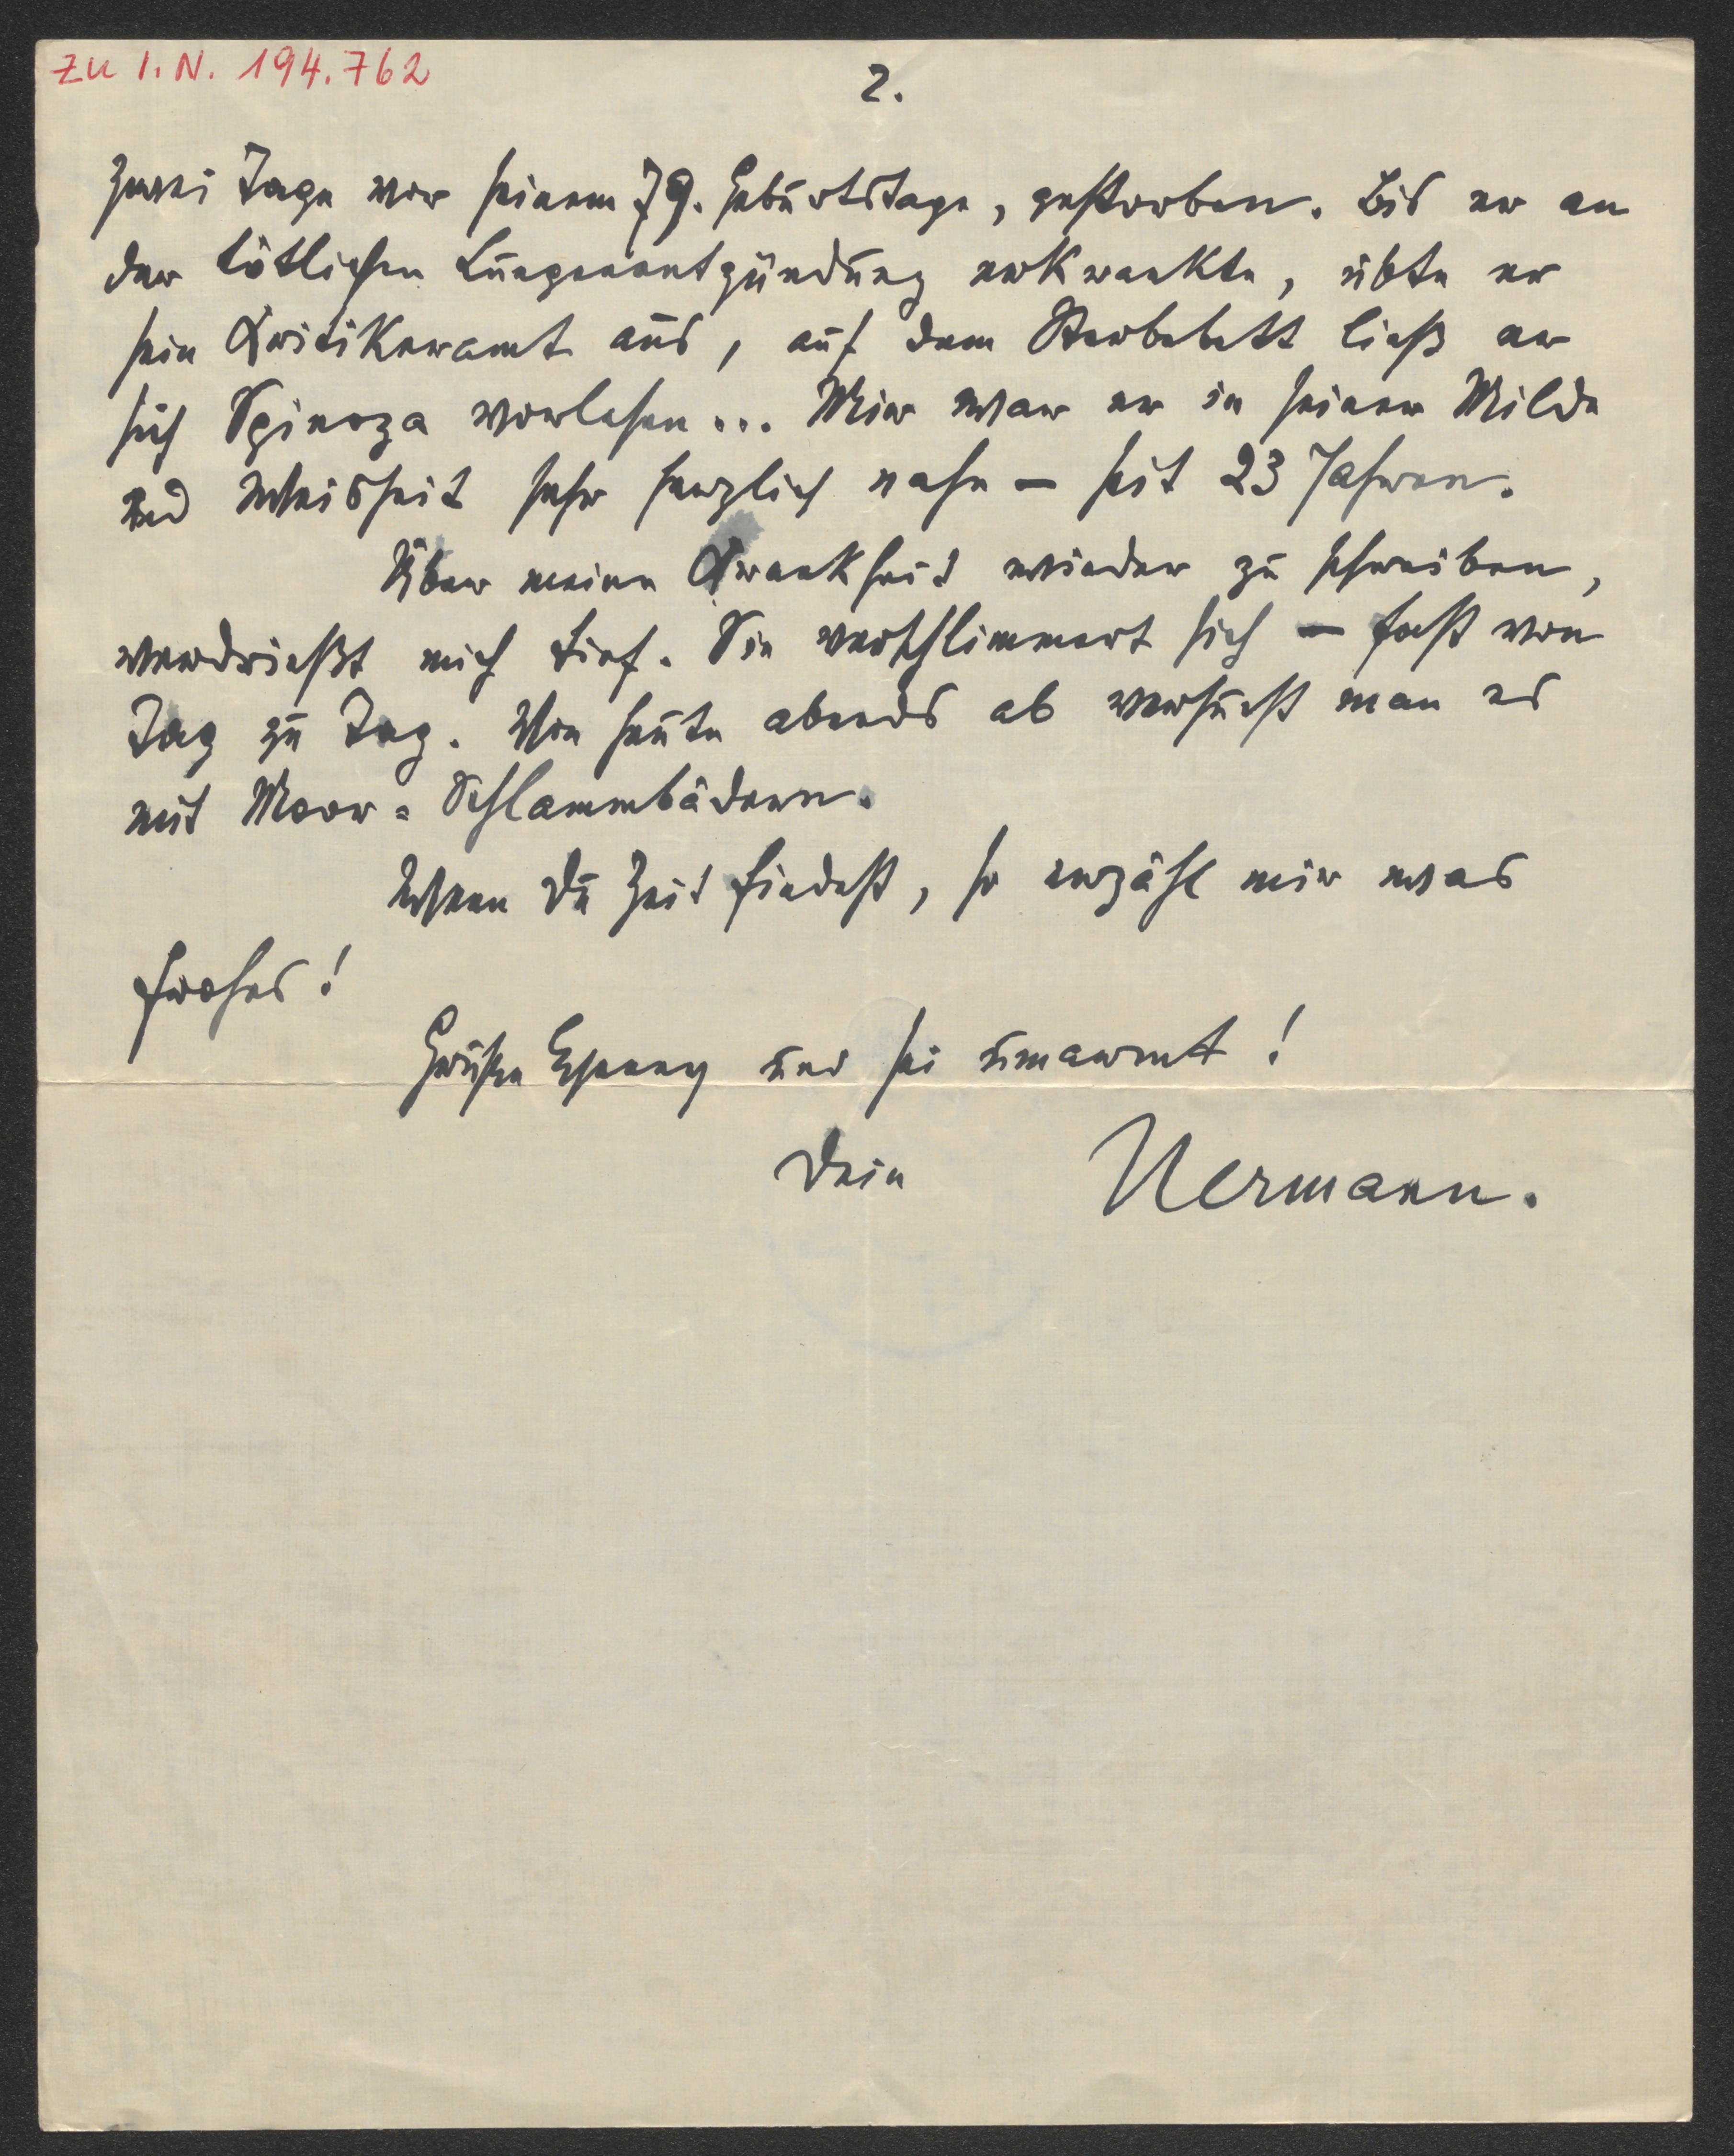 zu I. N. 194.762
2.
zwei Tage vor seinem 79. Geburtstage, gestorben. Bis er an
der tötlichen Lungenentzündung erkrankte, übte er
sein Kritikeramt aus, auf dem Sterbebett ließ er
sich Spinoza vorlesen... Mir war er in seiner Milde
und Weisheit sehr herzlich nahe – seit 23 Jahren.
Über meine Krankheit wieder zu schreiben,
verdrießt mich tief. Sie verschlimmert sich – fast von
Tag zu Tag. Von heute abends ab versucht man es
mit Moor= Schlammbädern.
Wenn Du Zeit findest, so erzähl mir was
frohes!
Grüße und sei umarmt!
Dein Hermann.